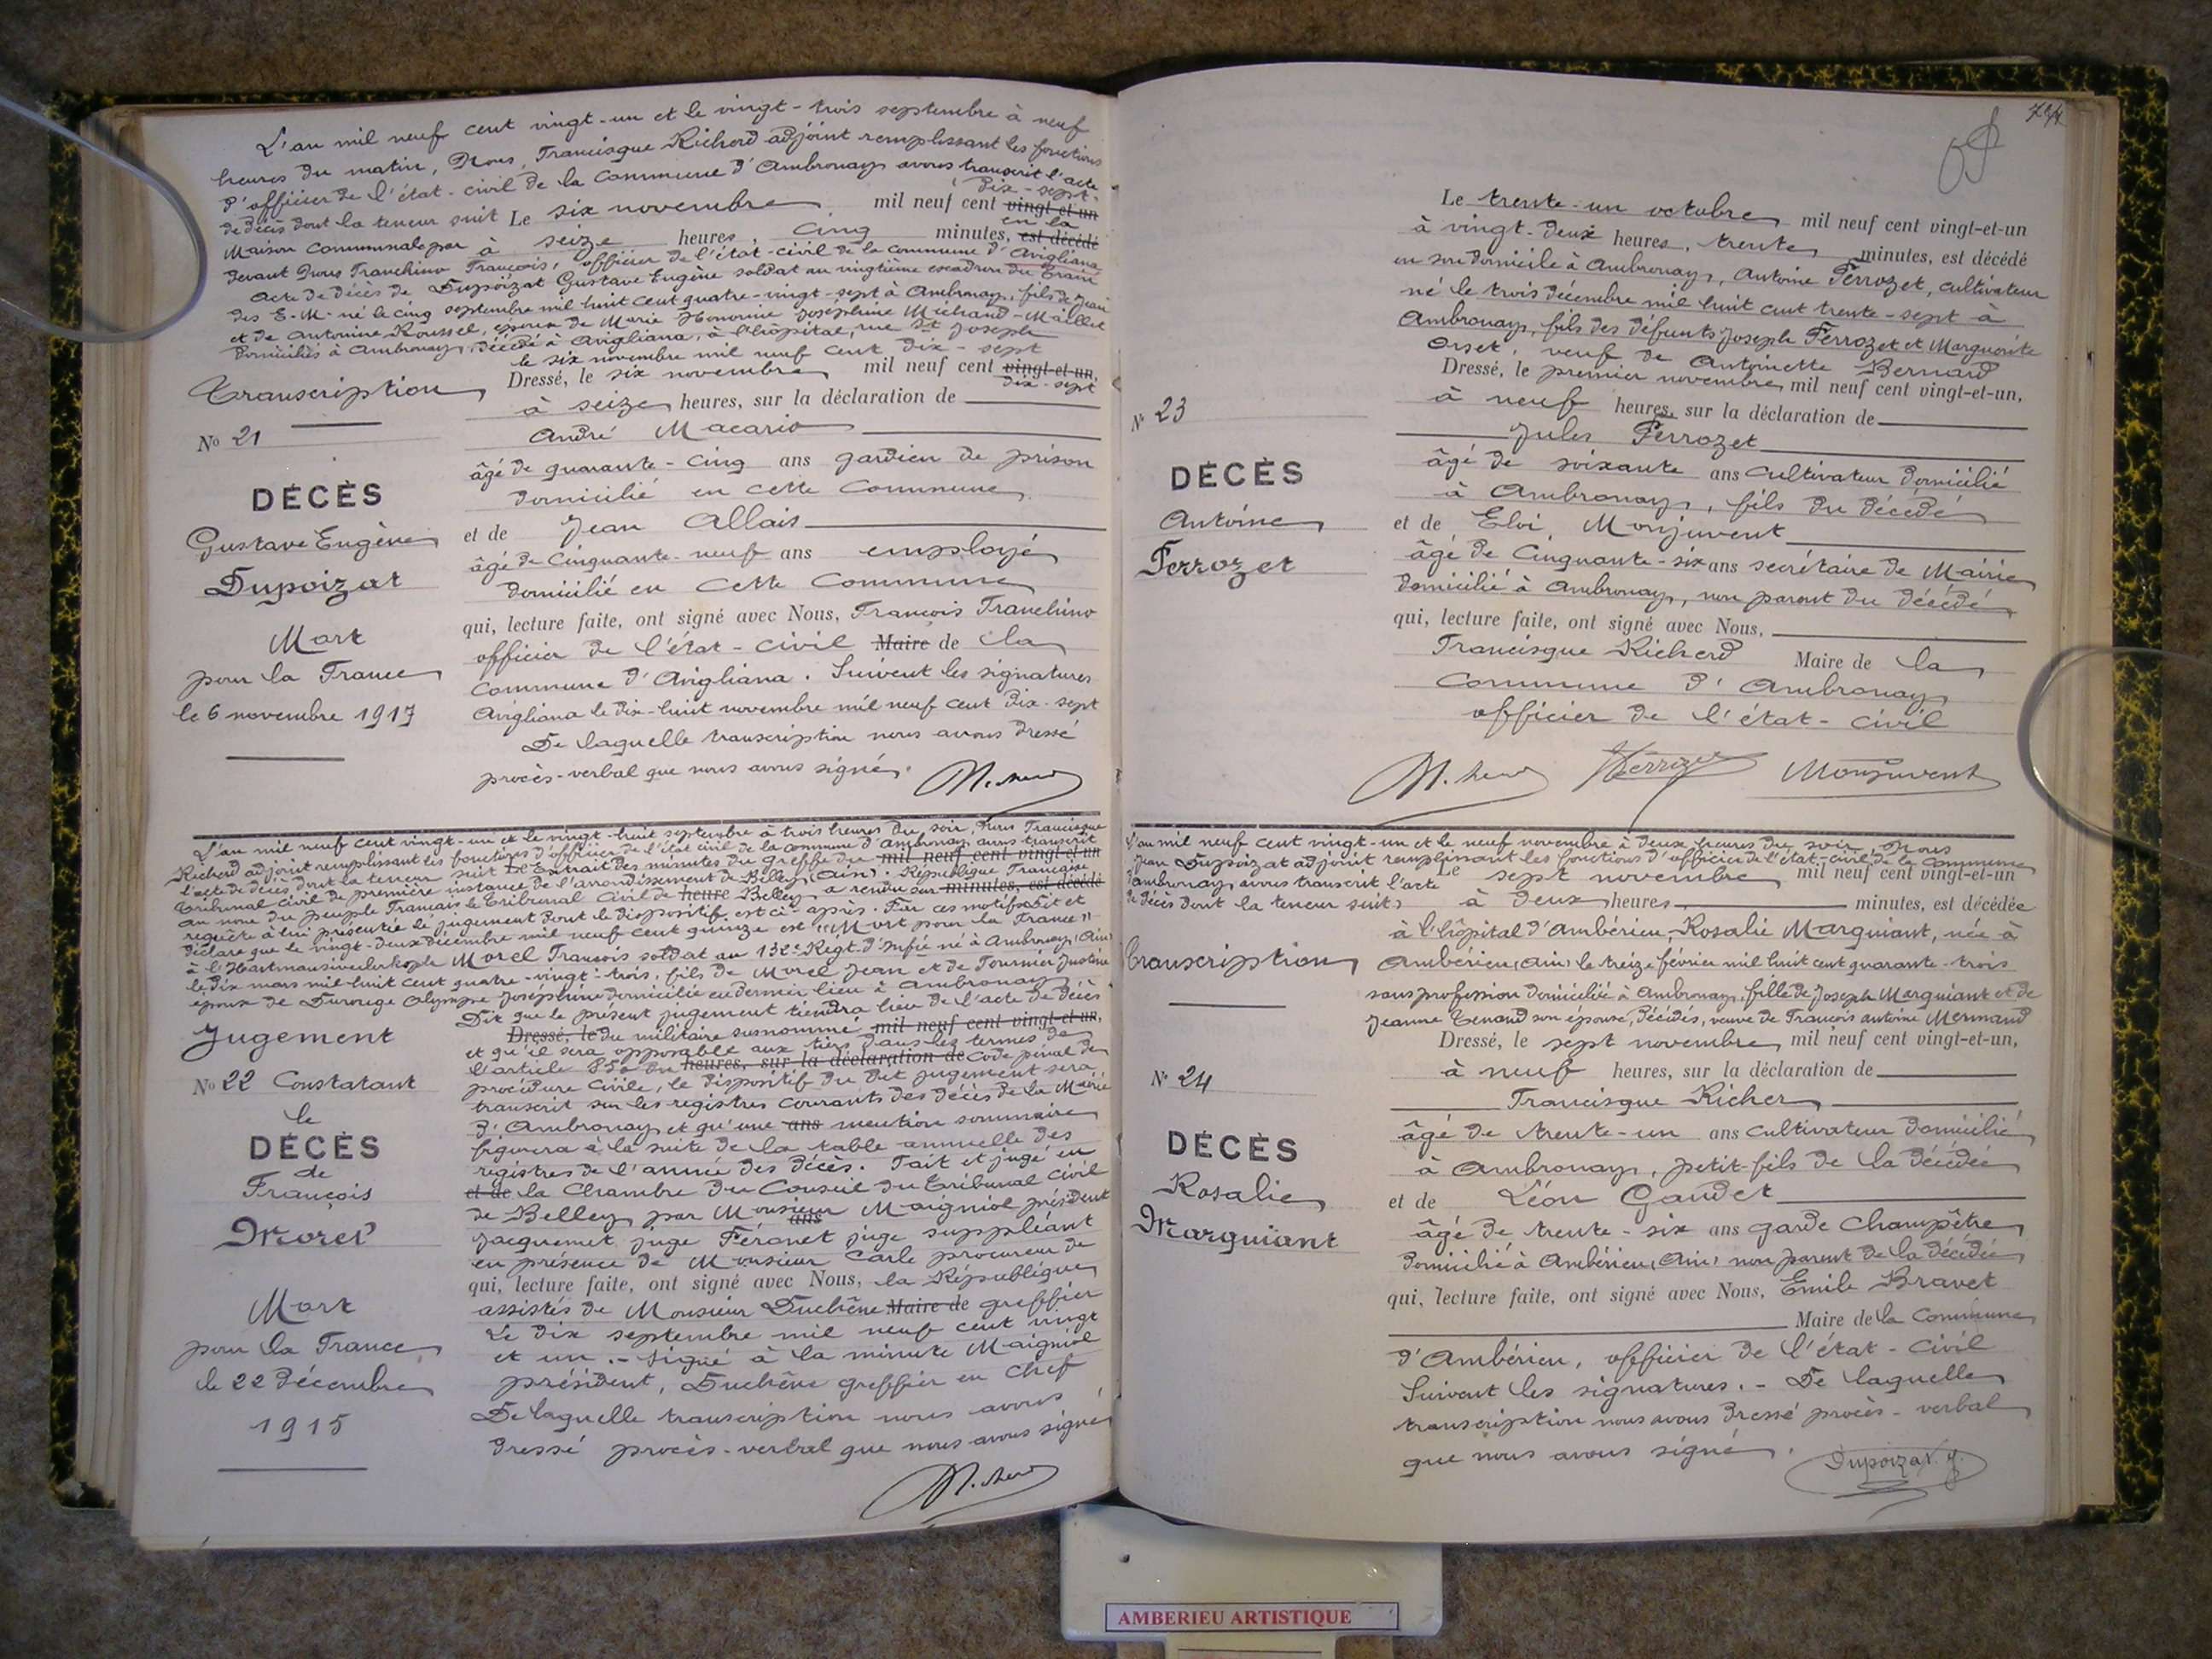 L'an mil neuf cent vingt-un et le vingt-trois septembre à neuf
heures du matin, Nous, Francisque Richerd adjoint remplissant les fonctions
d'officier de l'état-civil de la Commune d'Ambronay avons transcrit l'acte
de décès dont la teneur suit Le six novembre mil neuf cent vingt-et-un dix-sept
Maison Communale par à seize heures, cinq minutes, est décédé en la
devant Nous Franchino François, officier de l'état-civil de la commune d'Avigliana,
Acte de décès de Dupoizat Gustave Eugène soldat au vingtième escadron du Train
des E-M- né le cinq septembre mil huit cent quatre-vingt-sept à Ambronay, fils de Jean
et de Antonine Roussel, époux de Marie Honorine Joséphine Michaud-Maillet
domiciliés à Ambronay, décédé à Avigliana, à l'hôpital, rue St Joseph
le six novembre mil neuf cent dix-sept
Transcription
Dressé, le six novembre mil neuf cent vingt-et-un, dix-sept
à seize heures, sur la déclaration de
No 21
André Macario
âgé de quarante-cinq ans gardien de prison
domicilié en cette Commune
DÉCÈS
Gustave Eugène
Dupoizat
et de Jean Allais
âgé de Cinquante-neuf ans employé
domicilié en cette Commune
qui, lecture faite, ont signé avec Nous, François Franchino
Mort
pour la France
le 6 novembre 1917
officier de l'état-civil Maire de la
Commune d'Avigliana. Suivent les signatures
Avigliana le dix-huit novembre mil neuf cent dix-sept
De laquelle transcription nous avons dressé
procès-verbal que nous avons signé.
L'an mil neuf cent vingt-un et le vingt-huit septembre à trois heures du soir, Nous Francisque
Richerd adjoint remplissant les fonctions d'officier de l'état civil de la commune d'Ambronay avons transcrit
l'acte de décès dont la teneur suit Le Extrait des minutes du greffe du mil neuf cent vingt-et-un
Tribunal civil de première instance de l'arrondissement de Belley (Ain). République Française
au nom du peuple Français le Tribunal Civil de heure Belley a rendu sur minutes, est décédé
requête à lui présentée le jugement dont le dispositif est ci-après. Par ces motifs Dit et
déclare que le vingt-deux décembre mil neuf cent quinze est "Mort pour la France"
à l'Hartmansweilerkople Morel François soldat au 152e Régt d'Infie né à Ambronay (Ain)
le dix mars mil huit cent quatre-vingt-trois, fils de Morel Jean et de Tournier Justine
époux de Durouge Olympe Joséphine domicilié en dernier lieu à Ambronay
Dit que le présent jugement tiendra lieu de l'acte de décès
Jugement
Dressé, le du militaire susnommé mil neuf cent vingt-et-un,
et qu'il sera opposable aux tiers dans les termes de
l'article 850 du heures, sur la déclaration de Code pénal de
No 22 Constatant
le
DÉCÈS
de
François
Morel
procédure Civile, le dispositif du dit jugement sera
transcrit sur les registres courants des décès de la Mairie
d'Ambronay et qu'une ans mention sommaire
figurera à la suite de la table annuelle des
registres de l'année des décès. Fait et jugé en
et de la Chambre du Conseil du Tribunal Civil
de Belley par Monsieur ans Maigniol président
Jacquemet juge Féranet juge suppléant
en présence de Monsieur Carle procureur de
qui, lecture faite, ont signé avec Nous, la République
Mort
pour la France
le 22 décembre
1915
assistés de Monsieur Duchêne Maire de greffier
Le dix septembre mil neuf cent vingt
et un.- Signé à la minute Maigniol
président, Duchêne greffier en Chef
De laquelle transcription nous avons
dressé procès-verbal que nous avons signé
Le trente-un octobre mil neuf cent vingt-et-un
à vingt-deux heures, trente minutes, est décédé
en son domicile à Ambronay, Antoine Ferrozet, cultivateur
né le trois décembre mil huit cent trente-sept à
Ambronay, fils des défunts Joseph Ferrozet et Marguerite
Orset, veuf de Antoinette Bernard
Dressé, le premier novembre mil neuf cent vingt-et-un,
à neuf heures, sur la déclaration de
No 23
Jules Ferrozet
âgé de soixante ans cultivateur domicilié
à Ambronay, fils du décédé
DÉCÈS
Antoine
Ferrozet
et de Eloi Monjuvent
âgé de Cinquante-six ans secrétaire de Mairie
domicilié à Ambronay, non parent du décédé
qui, lecture faite, ont signé avec Nous,
Francisque Richerd Maire de la
Commune d'Ambronay
officier de l'état-civil
Ferrozet Monjuvent
L'an mil neuf cent vingt-un et le neuf novembre à deux heures du soir, Nous
Jean Dupoizat adjoint remplissant les fonctions d'officier de l'état-civil de la commune
d'Ambronay avons transcrit l'acte Le sept novembre mil neuf cent vingt-et-un
de décès dont la teneur suit: à deux heures minutes, est décédée
à l'hôpital d'Ambérieu, Rosalie Marguiant, née à
Transcription
Ambérieu (Ain) le treize février mil huit cent quarante-trois
sans profession domiciliée à Ambronay, fille de Joseph Marguiant et de
Jeanne Tenand son épouse, décédés, veuve de François Antoine Mermand
Dressé, le sept novembre mil neuf cent vingt-et-un,
à neuf heures, sur la déclaration de
No 24
Francisque Richer
âgé de trente-un ans cultivateur domicilié
à Ambronay, petit-fils de la décédée
DÉCÈS
Rosalie
Marguiant
et de Léon Gaudet
âgé de trente-six ans garde Champêtre
domicilié à Ambérieu (Ain) non parent de la décédée
qui, lecture faite, ont signé avec Nous, Emile Bravet
Maire de la Commune
d'Ambérieu, officier de l'état-civil
Suivent les signatures.- De laquelle
transcription nous avons dressé procès-verbal
que nous avons signé.
Dupoizat J.
AMBERIEU ARTISTIQUE